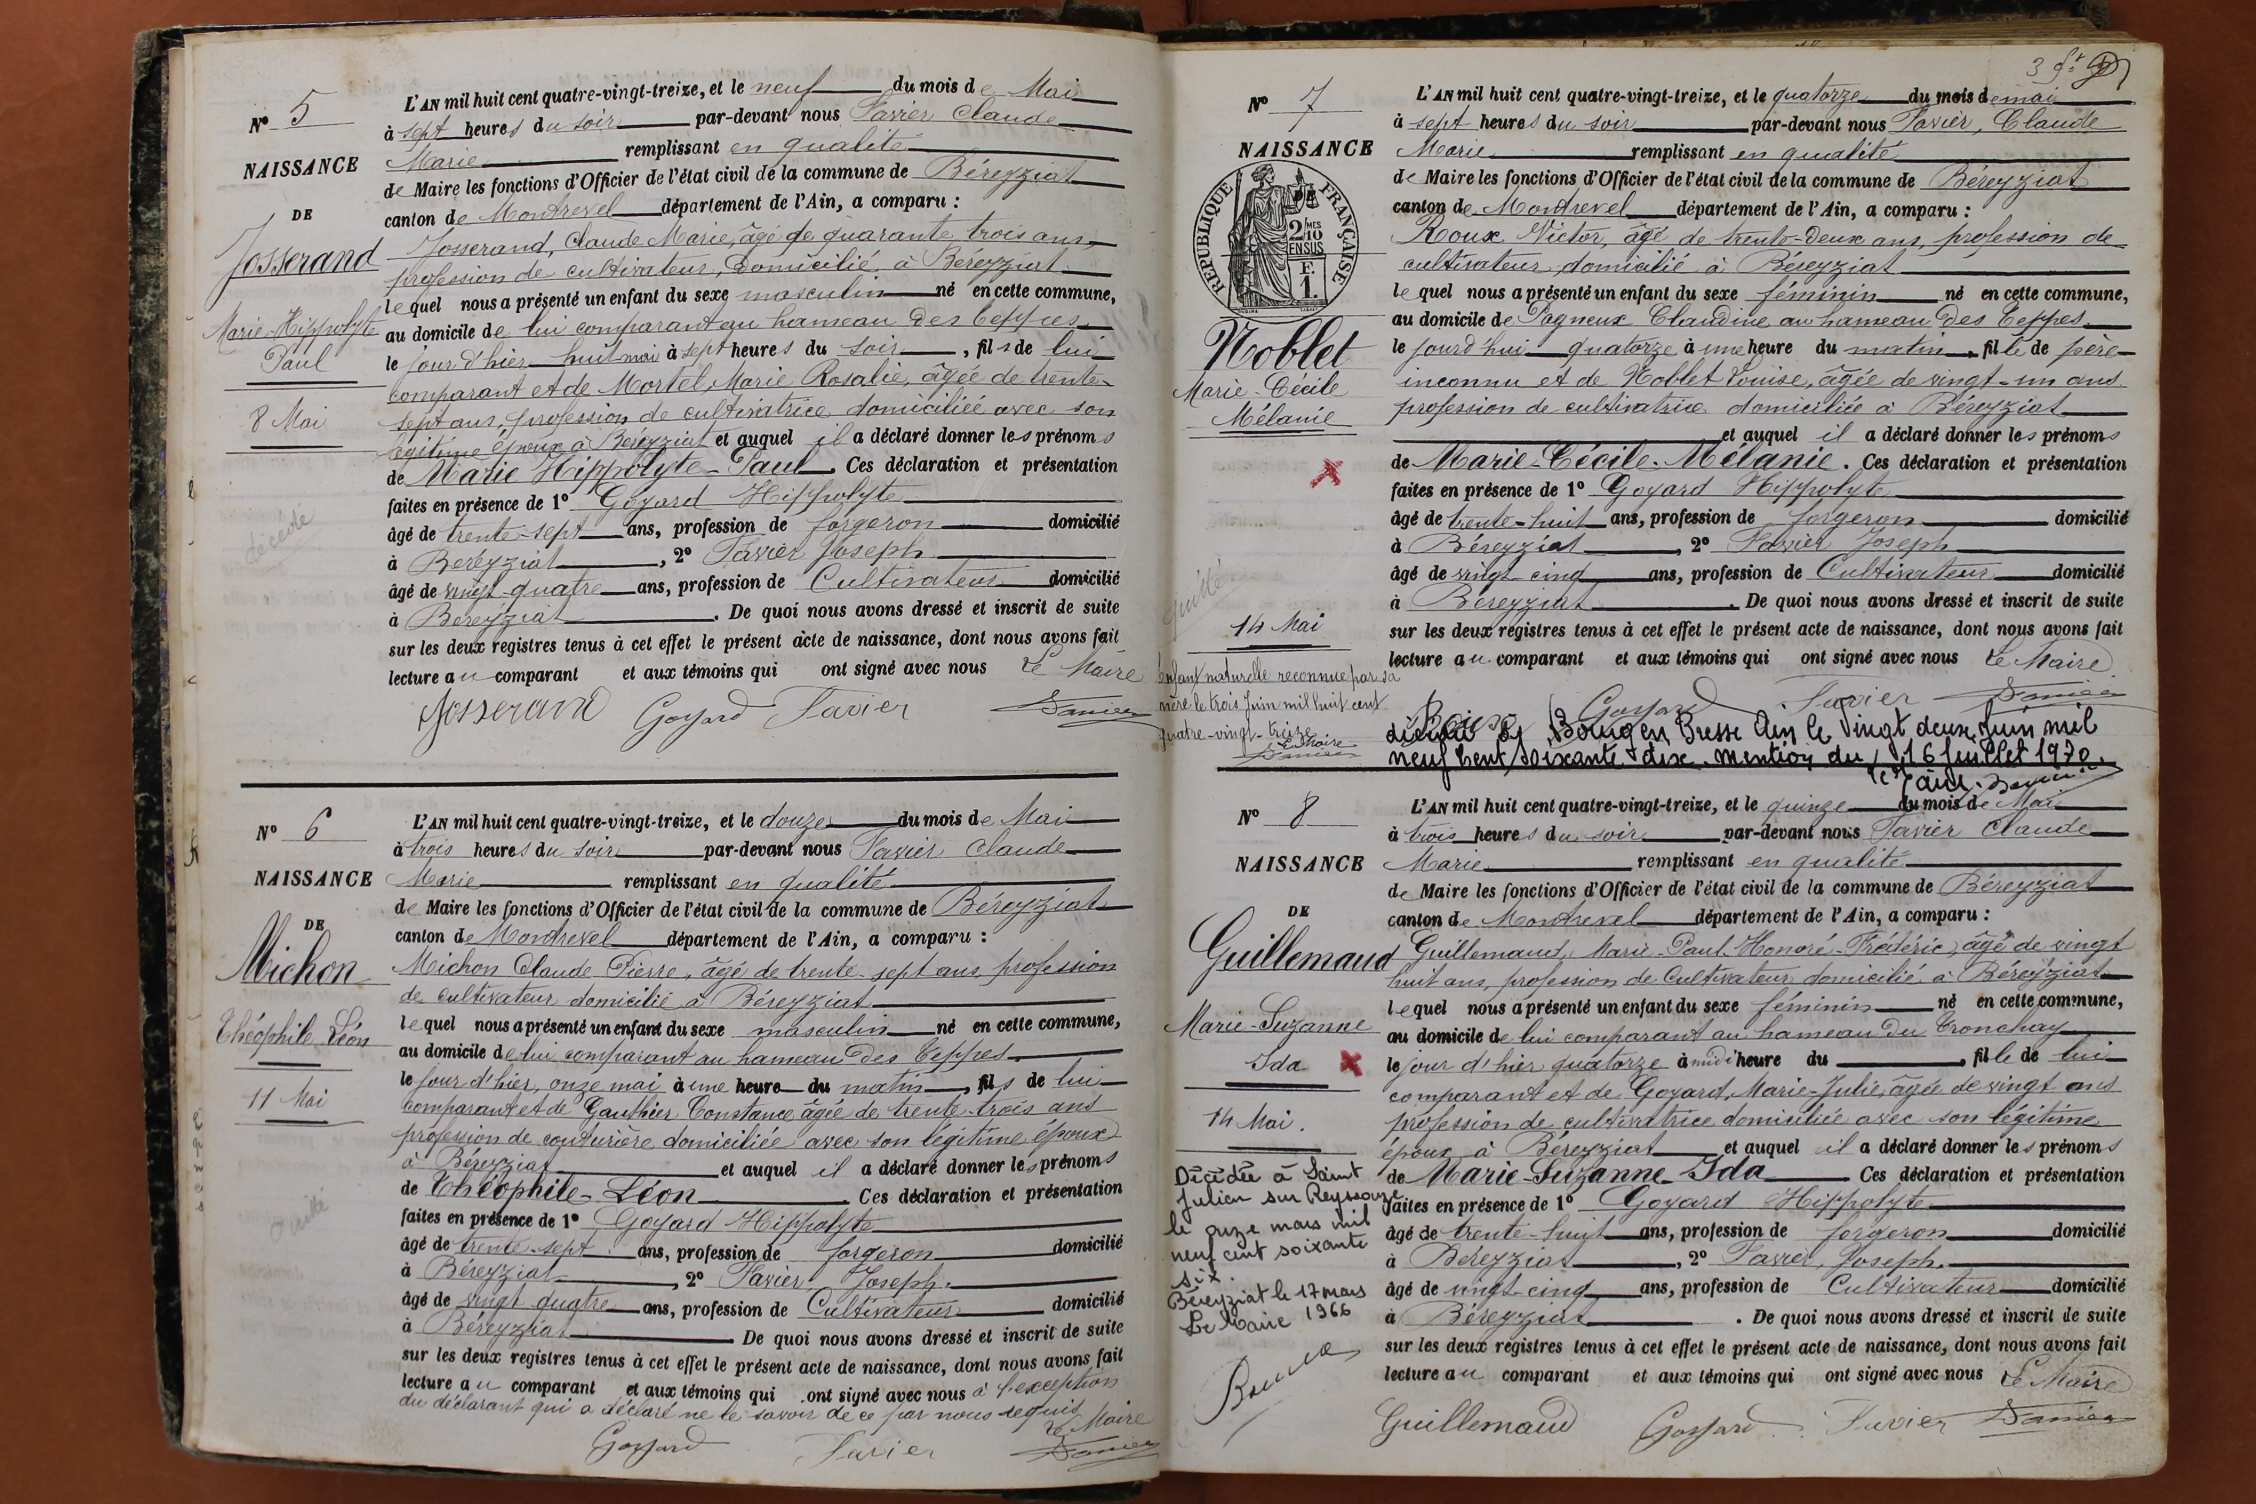 N° 5
NAISSANCE
DE
Josserand
Marie-Hippolyte
Paul
8 Mai
décédé
L'AN mil huit cent quatre-vingt-treize, et le neuf du mois de Mai
à sept heures du soir par-devant nous Favier Claude
Marie remplissant en qualité
de Maire les fonctions d'Officier de l'état civil de la commune de Béreyziat
canton de Montrevel département de l'Ain, a comparu :
Josserand, Claude Marie, âgé de quarante trois ans,
profession de cultivateur, domicilié à Béreyziat
lequel nous a présenté un enfant du sexe masculin né en cette commune,
au domicile de lui comparant au hameau des Teppes
le jour d'hier huit mai à sept heures du soir, fils de lui
comparant et de Mortel, Marie Rosalie, âgée de trente-
sept ans, profession de cultivatrice domiciliée avec son
légitime époux à Béreyziat et auquel il a déclaré donner les prénoms
de Marie Hippolyte-Paul. Ces déclaration et présentation
faites en présence de 1° Goyard Hippolyte
âgé de trente-sept ans, profession de forgeron domicilié
à Béreyziat, 2° Favier Joseph
âgé de vingt-quatre ans, profession de Cultivateur domicilié
à Béreyziat. De quoi nous avons dressé et inscrit de suite
sur les deux registres tenus à cet effet le présent acte de naissance, dont nous avons fait
lecture au comparant et aux témoins qui ont signé avec nous Le Maire
Josserand Goyard Favier Favier
N° 6
NAISSANCE
DE
Michon
Théophile-Léon
11 Mai
L'AN mil huit cent quatre-vingt-treize, et le douze du mois de Mai
à trois heures du soir par-devant nous Favier Claude
Marie remplissant en qualité
de Maire les fonctions d'Officier de l'état civil de la commune de Béreyziat
canton de Montrevel département de l'Ain, a comparu :
Michon Claude Pierre, âgé de trente-sept ans, profession
de cultivateur domicilié à Béreyziat
lequel nous a présenté un enfant du sexe masculin né en cette commune,
au domicile de lui comparant au hameau des Teppes
le jour d'hier, onze mai à une heure du matin, fils de lui
comparant et de Gauthier Constance âgée de trente-trois ans
profession de couturière domiciliée avec son légitime époux
à Béreyziat et auquel il a déclaré donner les prénoms
de Théophile-Léon. Ces déclaration et présentation
faites en présence de 1° Goyard Hippolyte
âgé de trente-sept ans, profession de forgeron domicilié
à Béreyziat, 2° Favier Joseph.
âgé de vingt-quatre ans, profession de Cultivateur domicilié
à Béreyziat. De quoi nous avons dressé et inscrit de suite
sur les deux registres tenus à cet effet le présent acte de naissance, dont nous avons fait
lecture au comparant et aux témoins qui ont signé avec nous à l'exception
du déclarant qui a déclaré ne le savoir de ce par nous requis
Le Maire
Goyard Favier Favier
3 ft
N° 7
NAISSANCE
DE
REPUBLIQUE FRANÇAISE
2/10MES
EN SUS
F.
1.
Noblet
Marie-Cécile
Mélanie
14 Mai
Enfant naturelle reconnue par sa
mère le trois Juin mil huit cent
quatre-vingt-treize
Le Maire
Favier
L'AN mil huit cent quatre-vingt-treize, et le quatorze du mois de mai
à sept heures du soir par-devant nous Favier, Claude
Marie remplissant en qualité
de Maire les fonctions d'Officier de l'état civil de la commune de Béreyziat
canton de Montrevel département de l'Ain, a comparu :
Roux Victor, âgé de trente-deux ans, profession de
cultivateur domicilié à Béreyziat
lequel nous a présenté un enfant du sexe féminin né en cette commune,
au domicile de Pagneux Claudine au hameau des Teppes
le jourd'hui quatorze à une heure du matin, fille de père
inconnu et de Noblet Louise, âgée de vingt-un ans
profession de cultivatrice domiciliée à Béreyziat
et auquel il a déclaré donner les prénoms
de Marie-Cécile-Mélanie. Ces déclaration et présentation
faites en présence de 1° Goyard Hippolyte
âgé de trente-huit ans, profession de forgeron domicilié
à Béreyziat, 2° Favier Joseph
âgé de vingt-cinq ans, profession de Cultivateur domicilié
à Béreyziat. De quoi nous avons dressé et inscrit de suite
sur les deux registres tenus à cet effet le présent acte de naissance, dont nous avons fait
lecture au comparant et aux témoins qui ont signé avec nous Le Maire
Goyard Favier Favier
décédée à Bourg en Bresse Ain le Vingt deux Juin mil
neuf Cent soixante dix. mention du 16 Juillet 1970.
N° 8
NAISSANCE
DE
Guillemaud
Marie-Suzanne
Ida
14 Mai.
Décédée à Saint
Julien sur Reyssouze
le onze mars mil
neuf cent soixante
six.
Béreyziat le 17 mars
1966
Le Maire
L'AN mil huit cent quatre-vingt-treize, et le quinze du mois de Mai
à trois heures du soir par-devant nous Favier Claude
Marie remplissant en qualité
de Maire les fonctions d'Officier de l'état civil de la commune de Béreyziat
canton de Montrevel département de l'Ain, a comparu :
Guillemaud, Marie-Paul-Honoré-Frédéric, âgé de vingt
huit ans, profession de Cultivateur domicilié à Béreyziat
lequel nous a présenté un enfant du sexe féminin né en cette commune,
au domicile de lui comparant au hameau du Tronchay
le jour d'hier quatorze à midi heure du, fille de lui
comparant et de Goyard, Marie-Julie, âgée de vingt ans
profession de cultivatrice domiciliée avec son légitime
époux à Béreyziat et auquel il a déclaré donner les prénoms
de Marie-Suzanne-Ida. Ces déclaration et présentation
faites en présence de 1° Goyard Hippolyte
âgé de trente-huit ans, profession de forgeron domicilié
à Béreyziat, 2° Favier, Joseph.
âgé de vingt-cinq ans, profession de Cultivateur domicilié
à Béreyziat. De quoi nous avons dressé et inscrit de suite
sur les deux registres tenus à cet effet le présent acte de naissance, dont nous avons fait
lecture au comparant et aux témoins qui ont signé avec nous Le Maire
Guillemaud Goyard Favier Favier